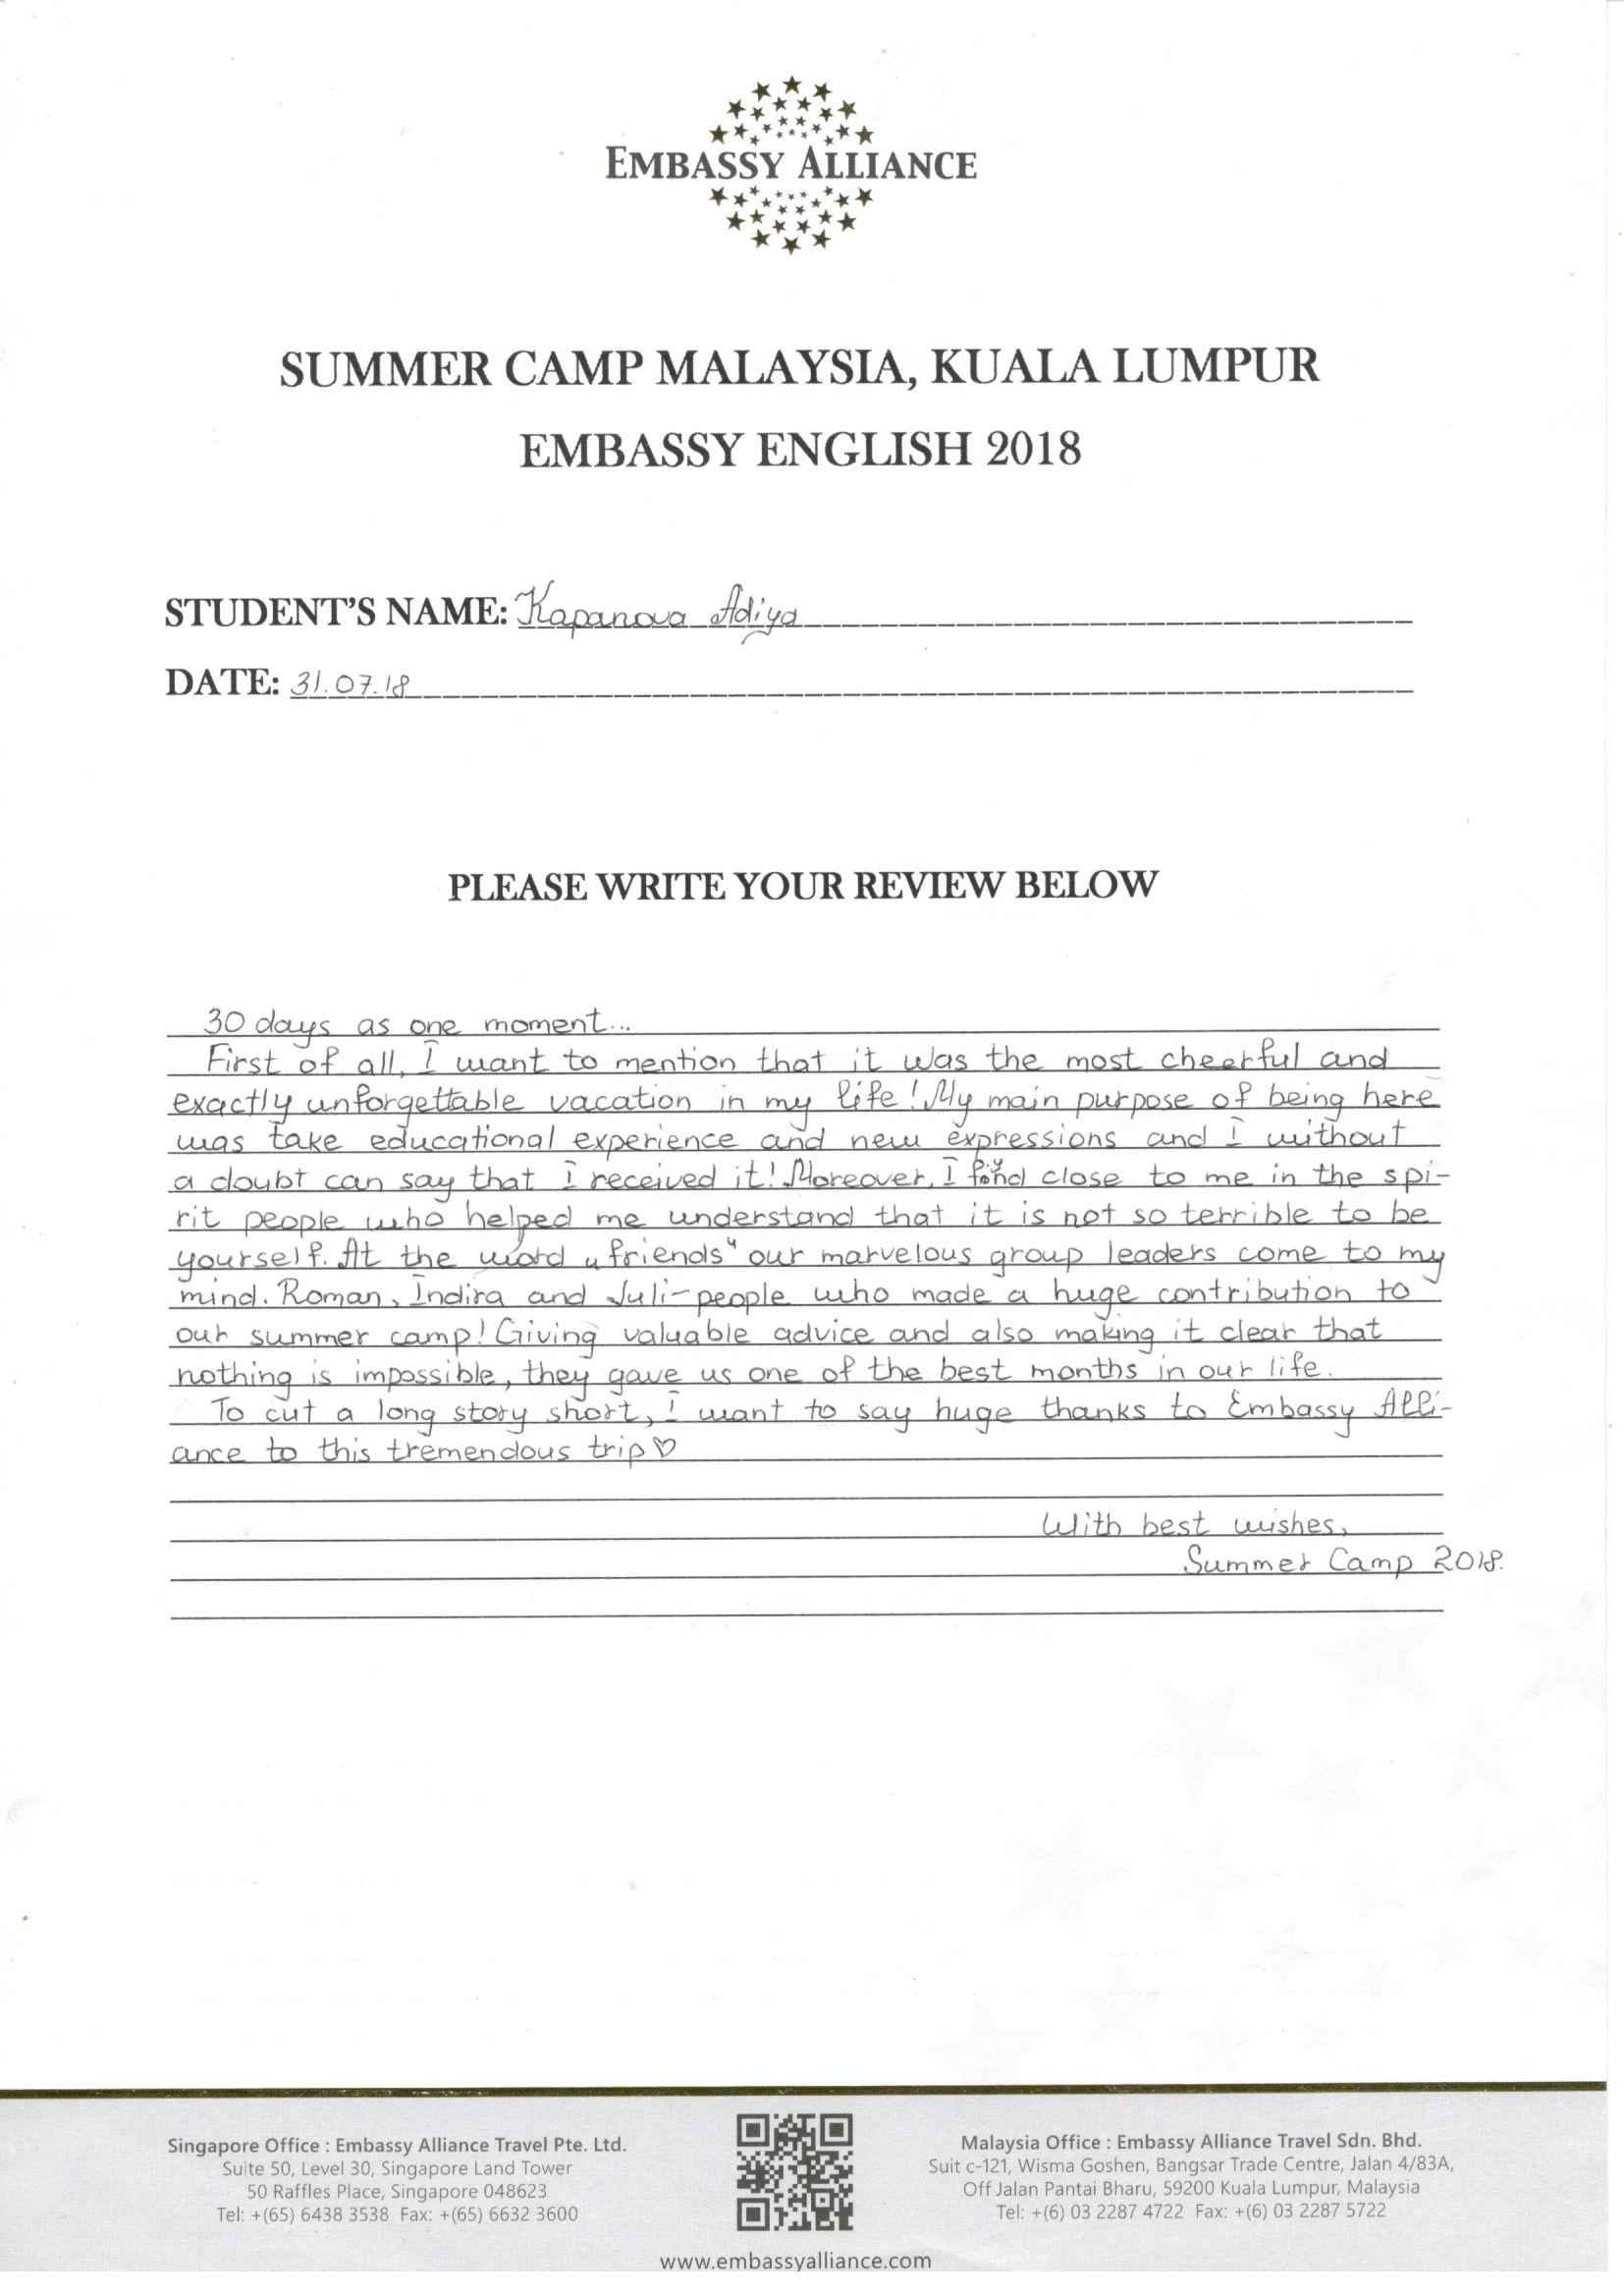 EMBASSY ALLIANCE
SUMMER CAMP MALAYSIA, KUALA LUMPUR
EMBASSY ENGLISH 2018
STUDENT'S NAME: Kapanova Adiya
DATE: 31.07.18
PLEASE WRITE YOUR REVIEW BELOW
30 days as one moment...
First of all, I want to mention that it was the most cheerful and
exactly unforgettable vacation in my life! My main purpose of being here
was take educational experience and new expressions and I without
a doubt can say that I received it! Moreover, I find close to me in the spi-
rit people who helped me understand that it is not so terrible to be
yourself. At the word „friends“ our marvelous group leaders come to my
mind. Roman, Indira and Juli-people who made a huge contribution to
our summer camp! Giving valuable advice and also making it clear that
nothing is impossible, they gave us one of the best months in our life.
To cut a long story short, I want to say huge thanks to Embassy Alli-
ance to this tremendous trip♡
With best wishes,
Summer Camp 2018.
Singapore Office : Embassy Alliance Travel Pte. Ltd.
Suite 50, Level 30, Singapore Land Tower
50 Raffles Place, Singapore 048623
Tel: +(65) 6438 3538 Fax: +(65) 6632 3600
Malaysia Office : Embassy Alliance Travel Sdn. Bhd.
Suit c-121, Wisma Goshen, Bangsar Trade Centre, Jalan 4/83A,
Off Jalan Pantai Bharu, 59200 Kuala Lumpur, Malaysia
Tel: +(6) 03 2287 4722 Fax: +(6) 03 2287 5722
www.embassyalliance.com